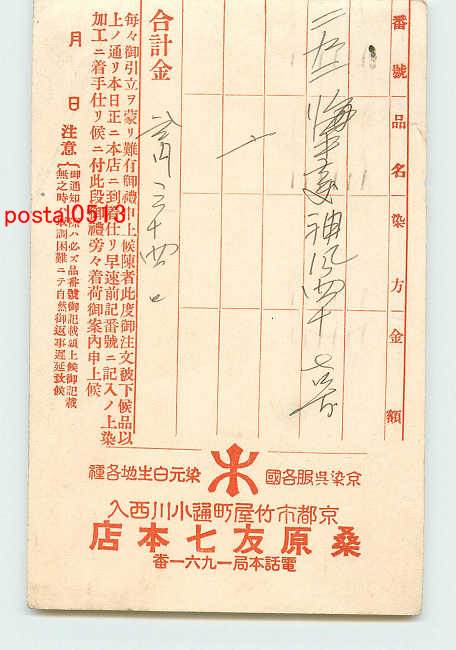 番號
品名
染方
金額
合計金
毎々御引立ヲ蒙リ難有御禮申上候陳者此度御注文被下候品以
上ノ通リ本日正ニ本店ニ到着仕リ早速前記番號ニ記入ノ上染
加工ニ着手仕リ候ニ付此段御禮旁々着荷御案內申上候
月 日
注意
御通知ノ際ハ必ズ品番號御記載願上候御記載
無之時ハ取調困難ニテ自然御返事遲延致候
postal0513
京染呉服各國
染元白生地各種
京都市竹屋町通小川西入
桑原友七本店
電話本局一九六一番